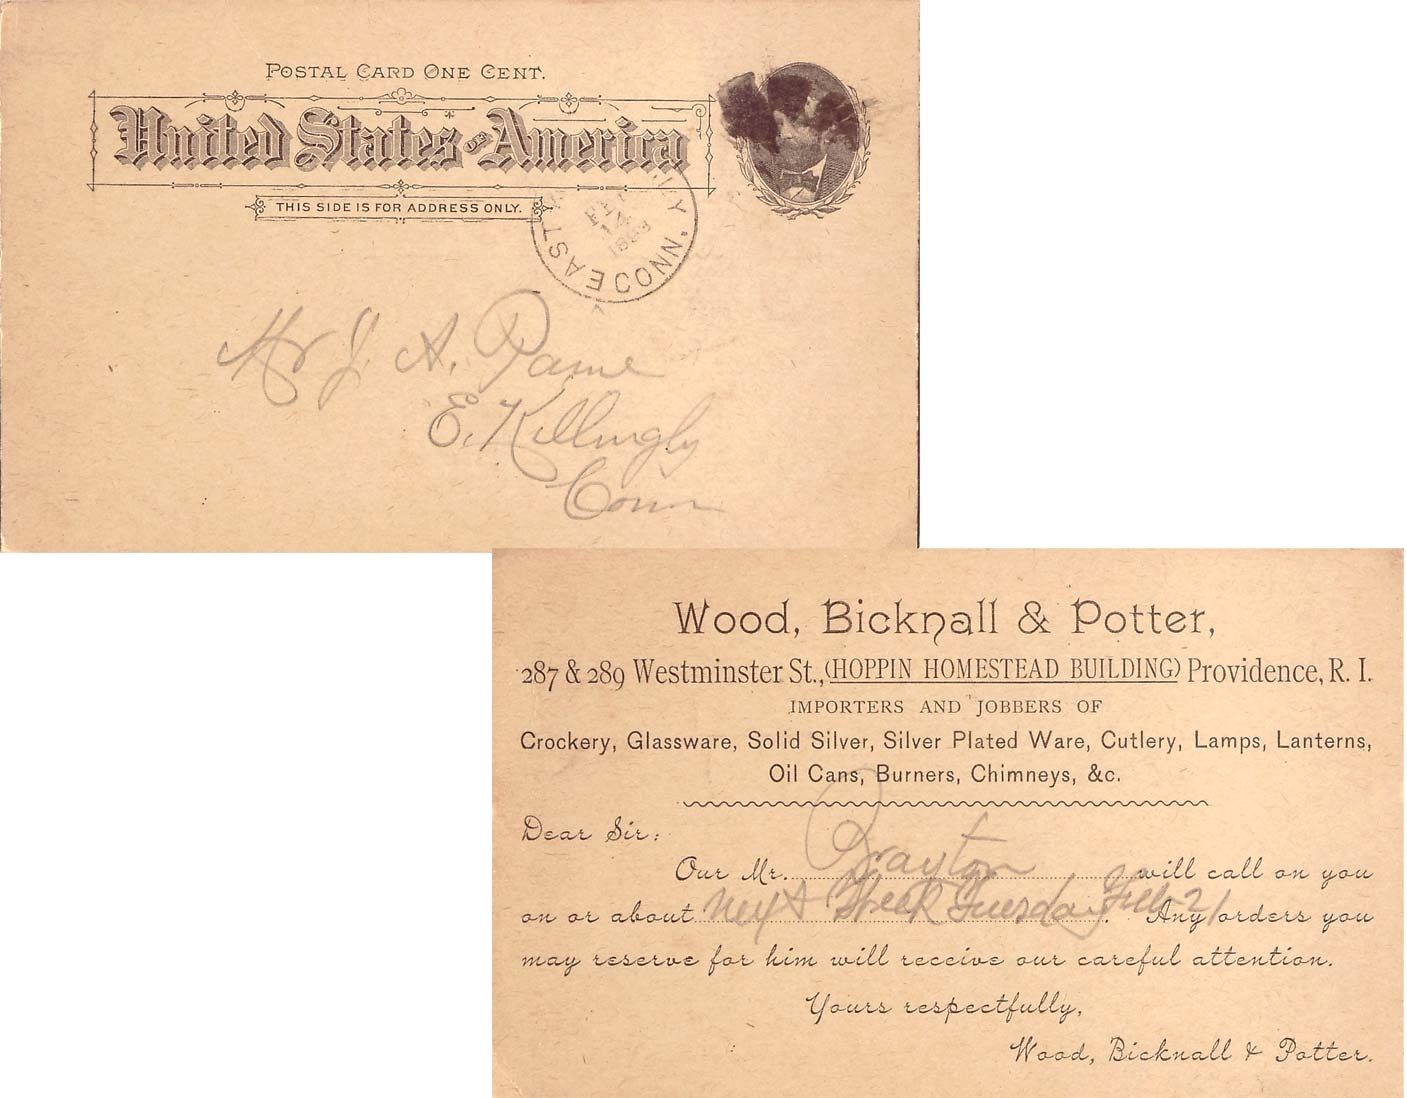 POSTAL CARD ONE CENT.
United States of America
THIS SIDE IS FOR ADDRESS ONLY.
EAST CONN.
14
Mr J. A. Paine
E. Killingly
Conn
Wood, Bicknall & Potter,
287 & 289 Westminster St., (HOPPIN HOMESTEAD BUILDING) Providence, R. I.
IMPORTERS AND JOBBERS OF
Crockery, Glassware, Solid Silver, Silver Plated Ware, Cutlery, Lamps, Lanterns,
Oil Cans, Burners, Chimneys, &c.
Dear Sir:
Our Mr. Brayton will call on you
on or about next Week Tuesday Feb 21. Any orders you
may reserve for him will receive our careful attention.
Yours respectfully,
Wood, Bicknall & Potter.